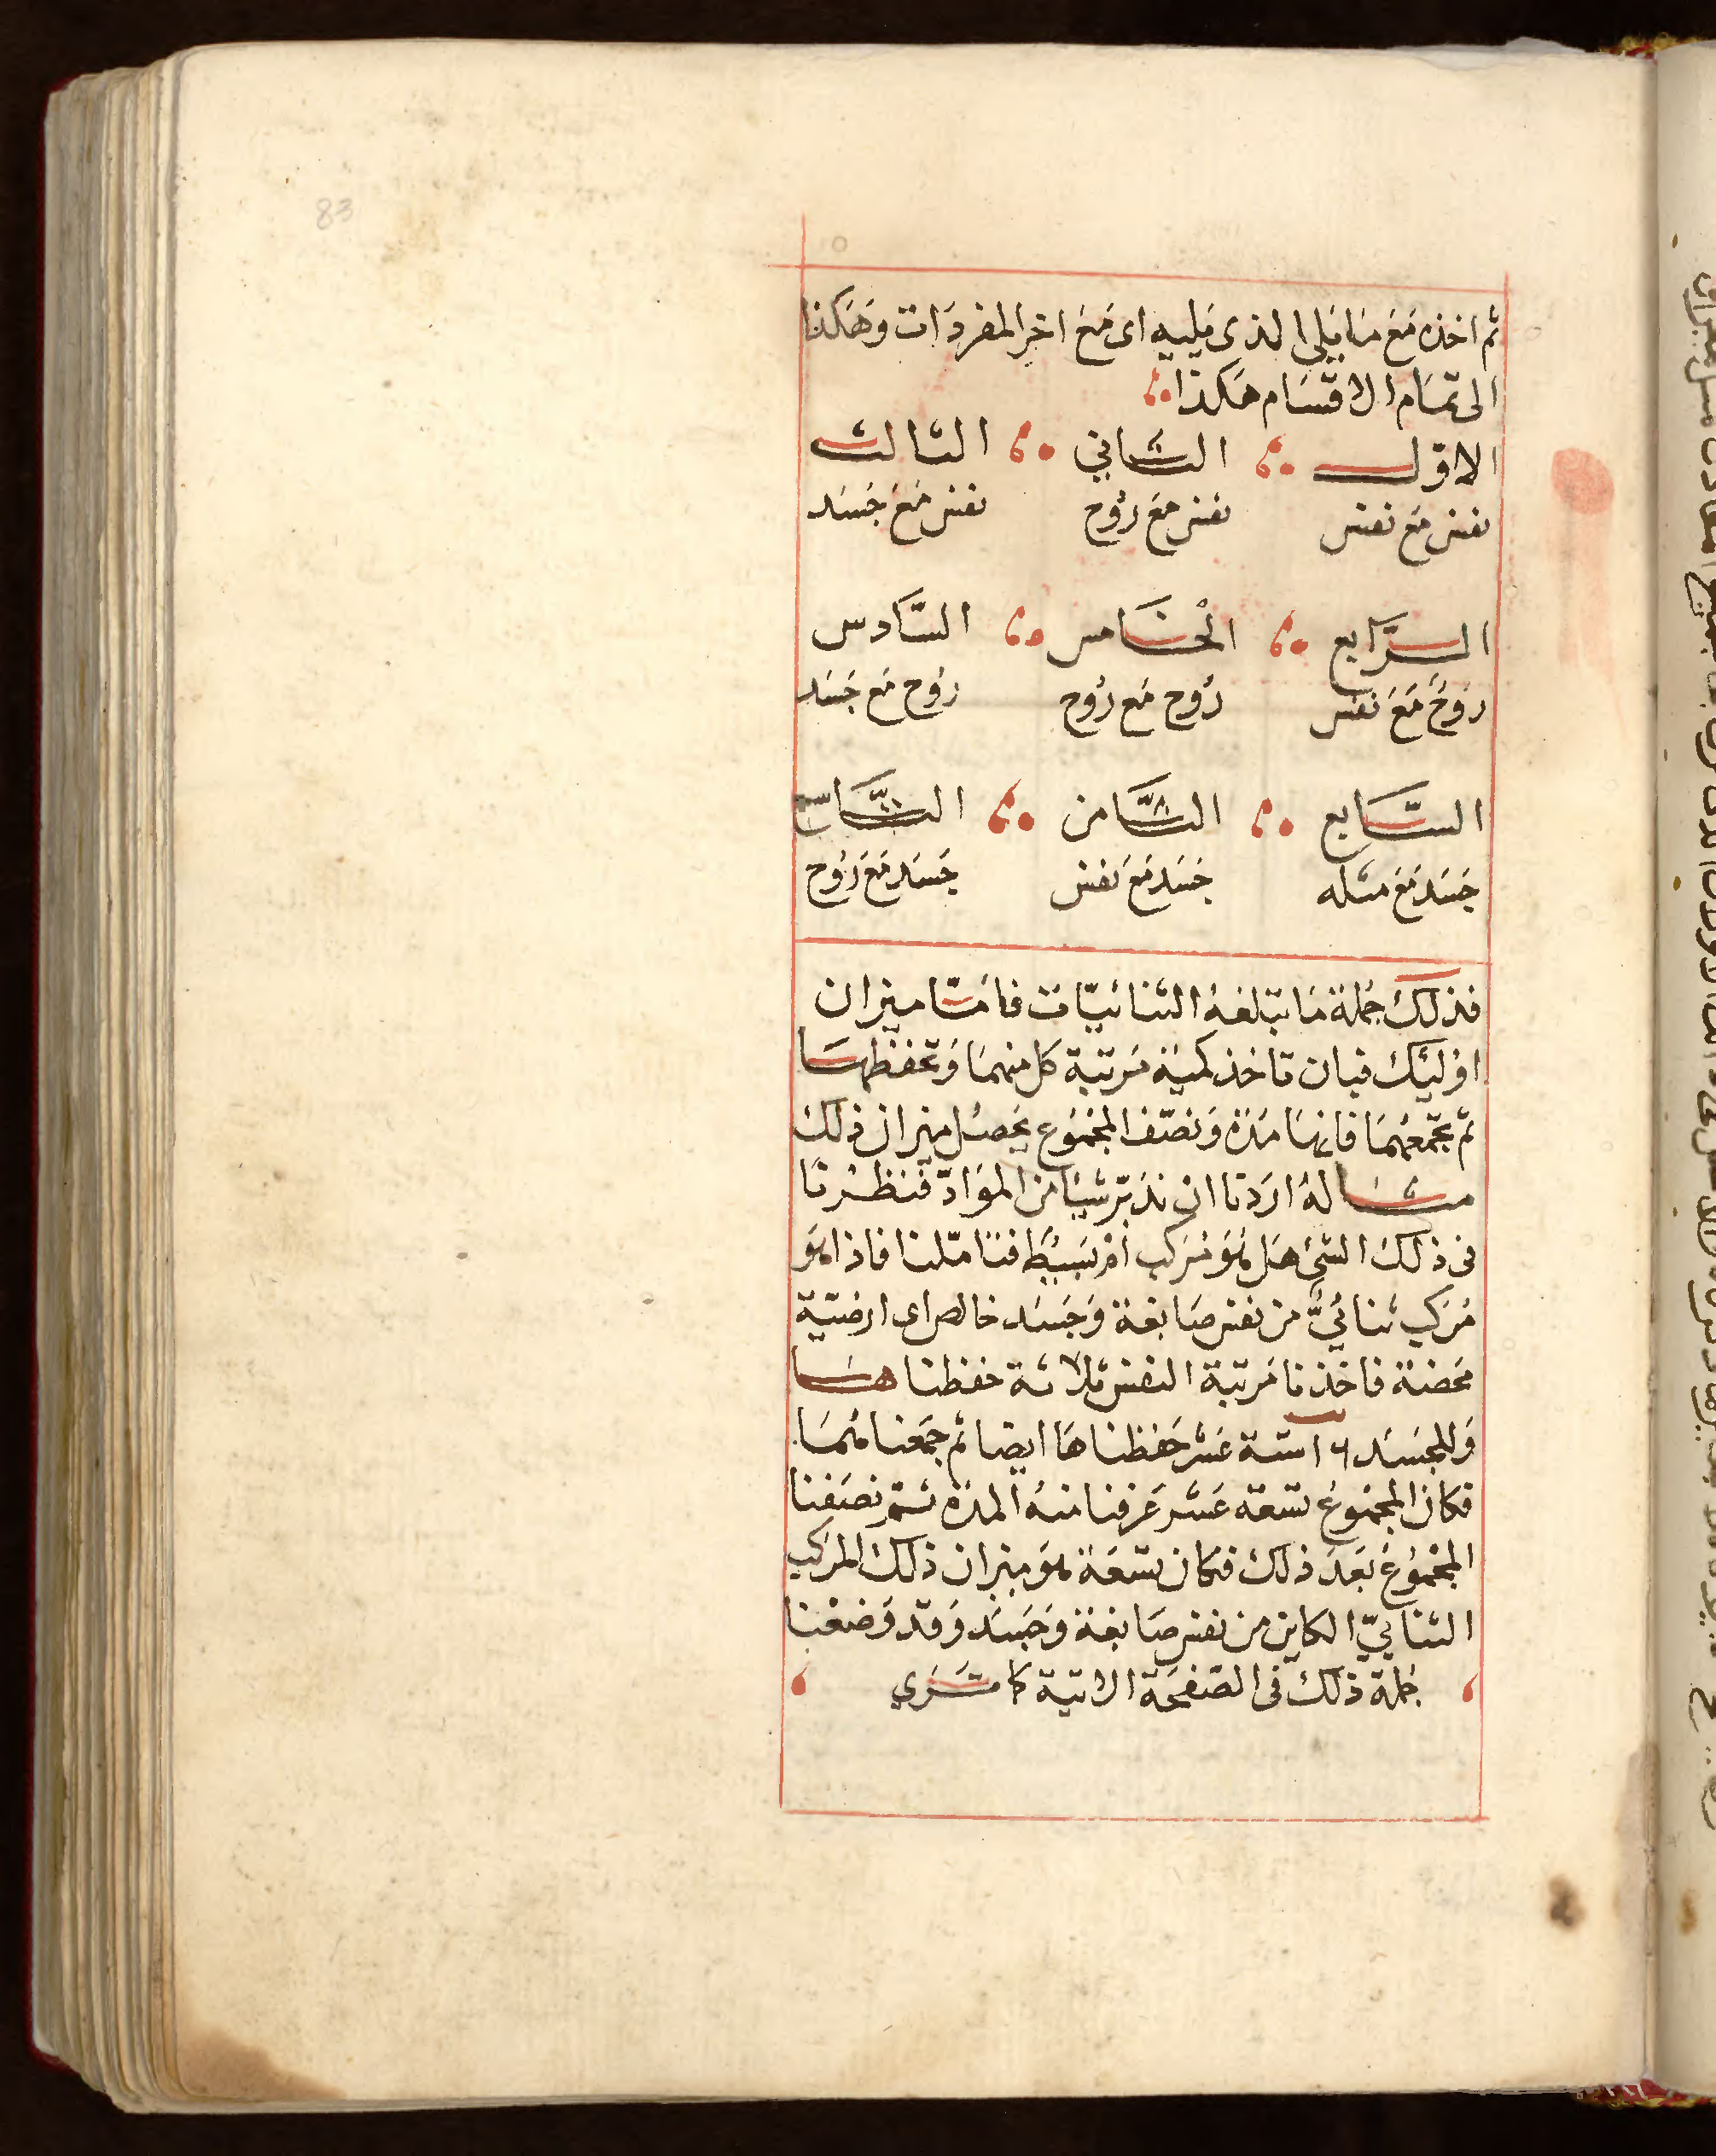 83
ثم اخذه مَعَ مَا يَلِي الذى يَلِيه اى مَعَ اخِرِ المفردَات وهَكَذا
الى تمَام الاقسَام هَكذا
الاوّل الثاني الثالث
نفس مَع نفس نفس مَعَ رُوح نفس مَعَ جَسَد
الرَّابع الخامس السَّادس
رُوحٌ مَعَ نفس رُوح مَع رُوح رُوح مَع جَسَد
السَّابع الثَّامن التَّاسع
جَسَد مَعَ مثله جَسَد مَعَ نفس جَسَد مَعَ رُوح
فذلكَ جُملة مَا تبلغهُ الثنائيّات فامّا ميزان
اوُلئِكَ فبان تاخذ كميّة مَرتبة كل منهمَا وَتحفظهَا
ثم تجمَعُهمَا فانهَا مدّة وَنصّف المجمُوع يحصُل ميزان ذلكَ
مثالهُ ارَدنا ان ندَبّر شيئا مِنَ الموَادّ فنَظرْنَا
فى ذلكَ الشئ هَل هُوَ مُركب أم بسَيط فتامّلنا فاذا هُوَ
مُركب ثنائيٌّ من نفس صَابغة وَجَسَد خالص اى ارضيّة
مَحضة فاخذنا مَرتبة النفس ثلاثة حفظناهَا
وَللجَسَد ١٦ ستة عَشر حَفظناهَا ايضا ثم جَمَعنا هُمَا
فكان المجمُوعُ تسعة عَشر عَرفنا منهُ المدّة ثم نصَفنا
المجمُوعَ بَعدَ ذلكَ فكان تسعَة هُوَ ميزان ذلكَ المركب
الثنائيّ الكاين من نفس صَابغة وَجَسَد وَقد وَضعْنا
جُملة ذلكَ فى الصّفحَة الاتية كما ترَي